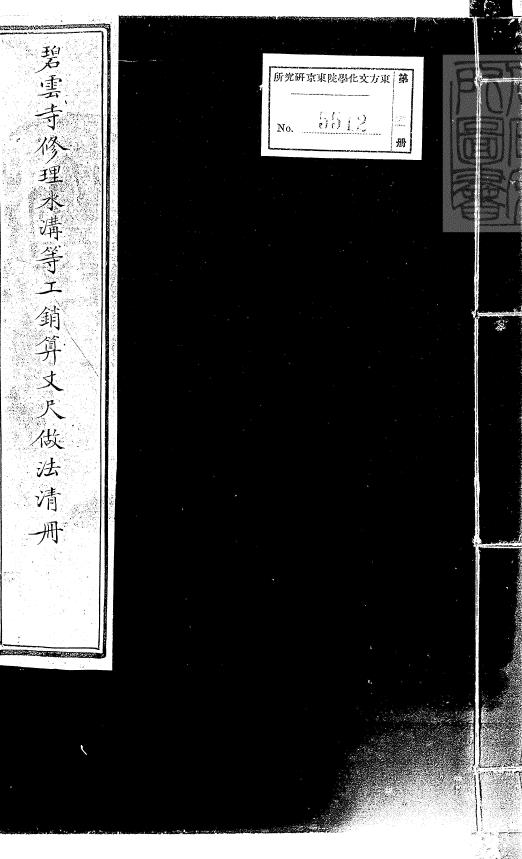 碧雲寺修理水溝等工銷算丈尺做法清冊
東方文化學院東京研究所
第
册
No. 5512